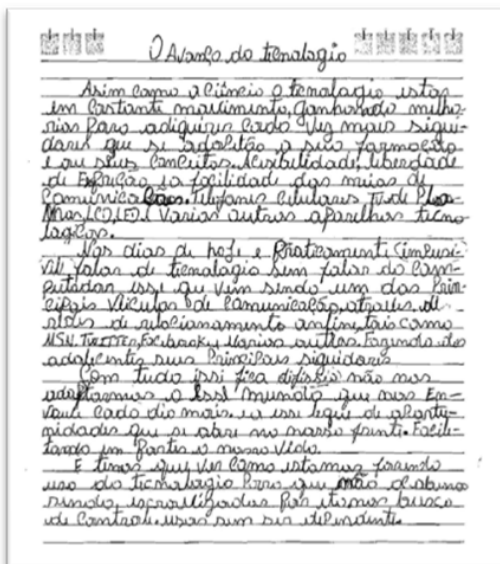 O Avanço da tecnalagio
Asim camo a ciência e tecnalagio estar
em Castante maviimento, ganhando milho-
rias Para adiquirir cada Vez mais sigui-
dares que se adapitão a sua farmação
e au seus Canceitos. Acessibilidade, liberdade
de Expreção ea facilidade das meias de
Camunicações. Telefanes Celulares, TV de Plas-
Mas, LCD, LED. E Varias autras aparelhas tecno-
lagicas.
Nas dias de hoje e Praticamente impussi-
vil falar de tecnalagio sem falar do Cam-
putadar esse que vem sendo um das Prin-
cipais Veiculas de Camunicação, atraves de
redes de relacianamento anfim, tais camo
MSN, Twitter, Facebook e Varias autras. Fazendo das
adalecentes seus Principais siguidares.
Com tudo issi fica difissio não nas
adaptarmas a Esse mundo que nas En-
valve cada dia mais. ea esse leque de aPartu-
nidades que si abre na nassa frente. Facili-
tando em Partes a nassa Vida.
E temas que ver Camo estamas fazendo
uso da tecnalagio Para que não acabamos
sendo escravilizadas Par
de Cantrole. usar sem ser dependente.